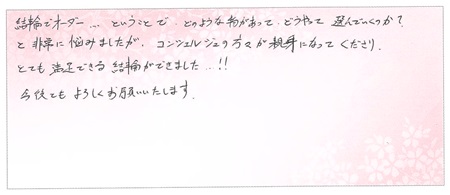 結輪でオーダー… ということで どのような物があって、どうやって 選んでいくのか?
と 非常に悩みましたが、コンシェルジュの方々が親身になって くださり、
とても 満足できる 結輪ができました…!!
今後とも よろしくお願いいたします。